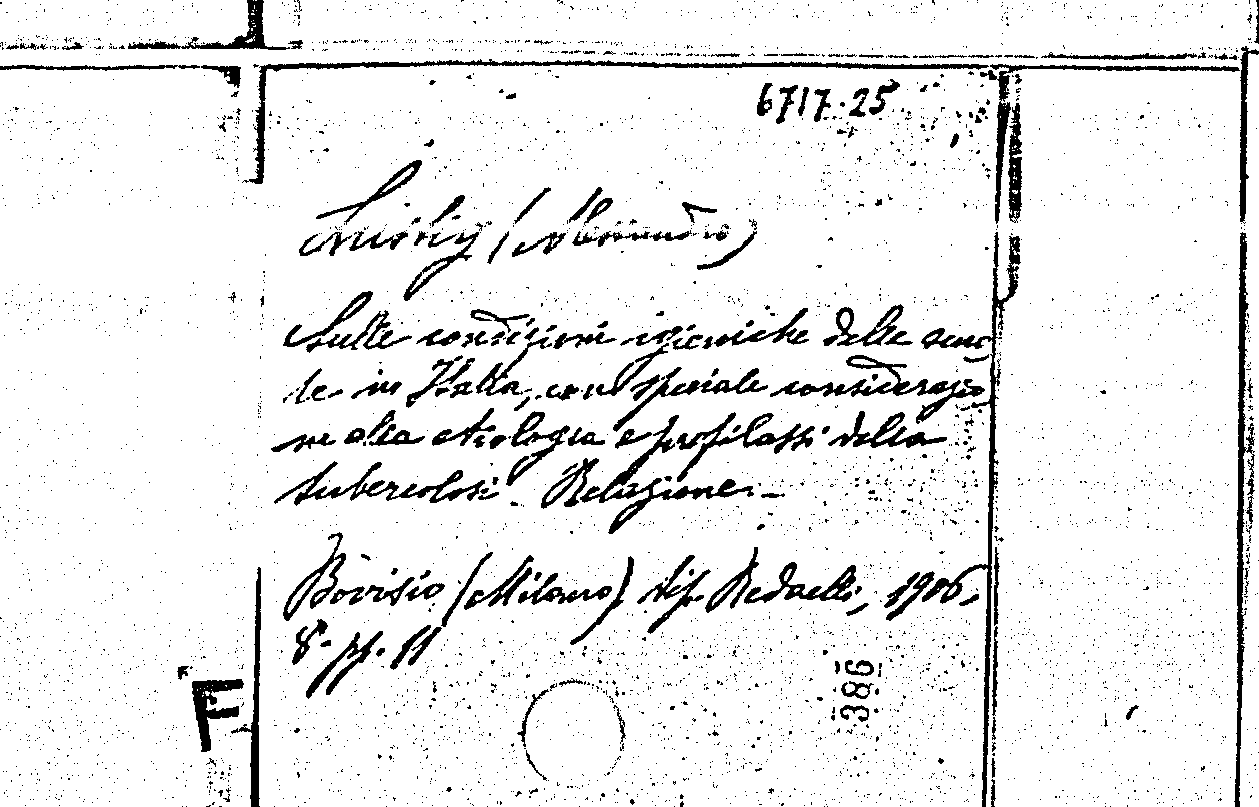 6717.25
Lustig (Alessandro)
Sulle condizioni igieniche delle scuo
le in Italia, con speciale considerazio
ne alla etiologia e profilassi della
tubercolosi. Relazione.
Bovisio (Milano) tip. Redaelli, 1906.
8° pp. 11
386
F